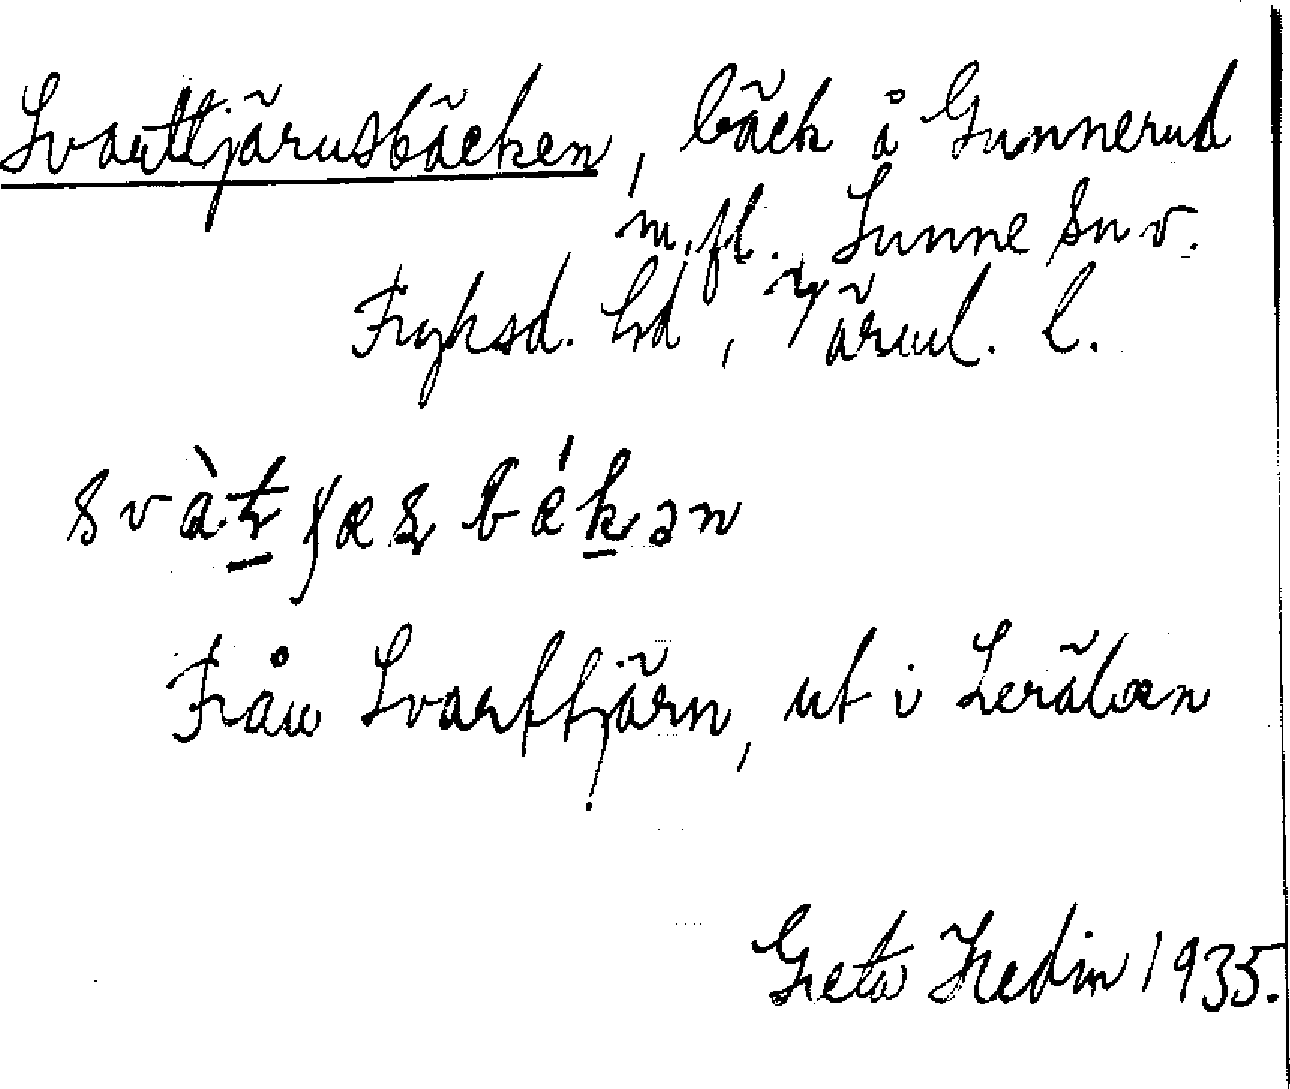 Svarttjärnsbäcken, bäck å Gunnerud
m. fl. Sunne sn v.
Fryksd. hd, Värml. l.
Från Svarttjärn, ut i Lerälven
Greta Hedin 1935.